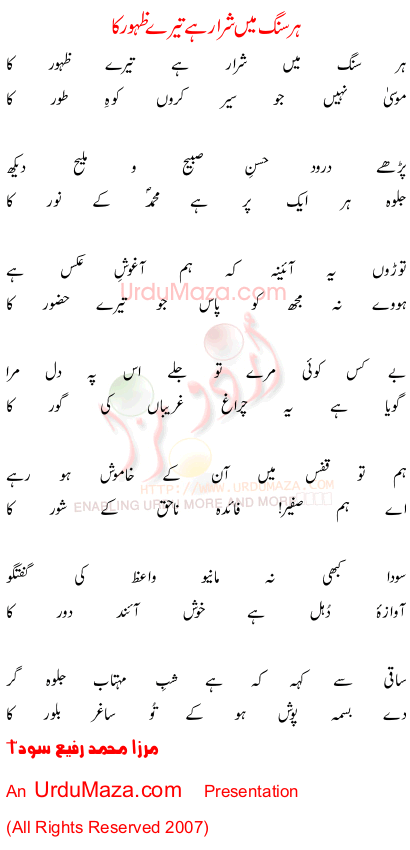 ہر سنگ میں شرار ہے تیرے ظہور کا
ہر سنگ میں شرار ہے تیرے ظہور کا
موسیٰ نہیں جو سیر کروں کوہِ طور کا
پڑھے درود حسنِ صبیح و ملیح دیکھ
جلوہ ہر ایک پر ہے محمدؐ کے نور کا
توڑوں یہ آئینہ کہ ہم آغوشِ عکس ہے
UrduMaza.com
ہووے نہ مجھ کو پاس جو تیرے حضور کا
بے کس کوئی مرے تو جلے اس پہ دل مرا
اردو مزا
گویا ہے یہ چراغ غریباں کی گور کا
ہم تو قفس میں آن کے خاموش ہو رہے
HTTP://WWW.URDUMAZA.COM
ENABLING URDU MORE AND MORE
اے ہم صفیر! فائدہ ناحق کے شور کا
سودا کبھی نہ مانیو واعظ کی گفتگو
آوازۂ دُہل ہے خوش آئند دور کا
ساقی سے کہہ کہ ہے شبِ مہتاب جلوہ گر
دے بسمہ پوش ہو کے تُو ساغر بلور کا
مرزا محمد رفیع سودا
An UrduMaza.com Presentation
(All Rights Reserved 2007)